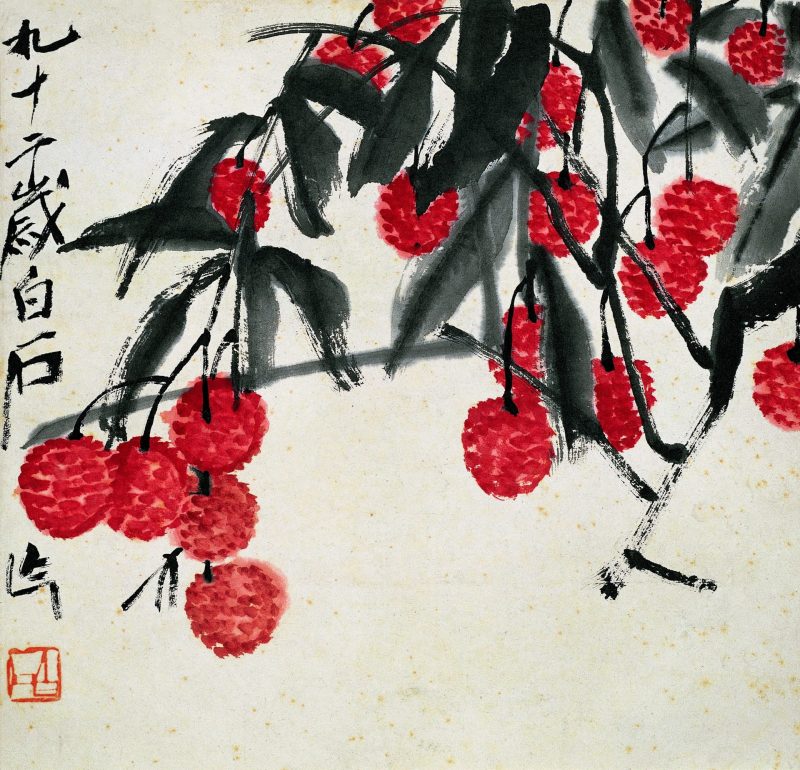 九十二歲白石作